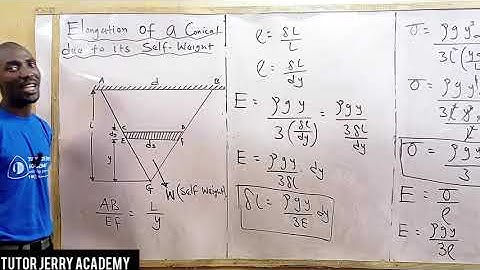 Elongation of a Conical
due to its Self-Weight
A
d
B
L
C
D
E
F
ds
y
G
W (self weight)
AB/EF = L/y
e = δL/L
e = δL/dy
E = ρgy/3(δL/dy) = ρgy/(3δL/dy)
E = ρgy/3δL dy
δL = ρgy/3E dy
σ = ρgy³
σ = ρgy
σ = ρgy/3
E = σ/e
E = ρgy/3e
TUTOR JERRY ACADEMY